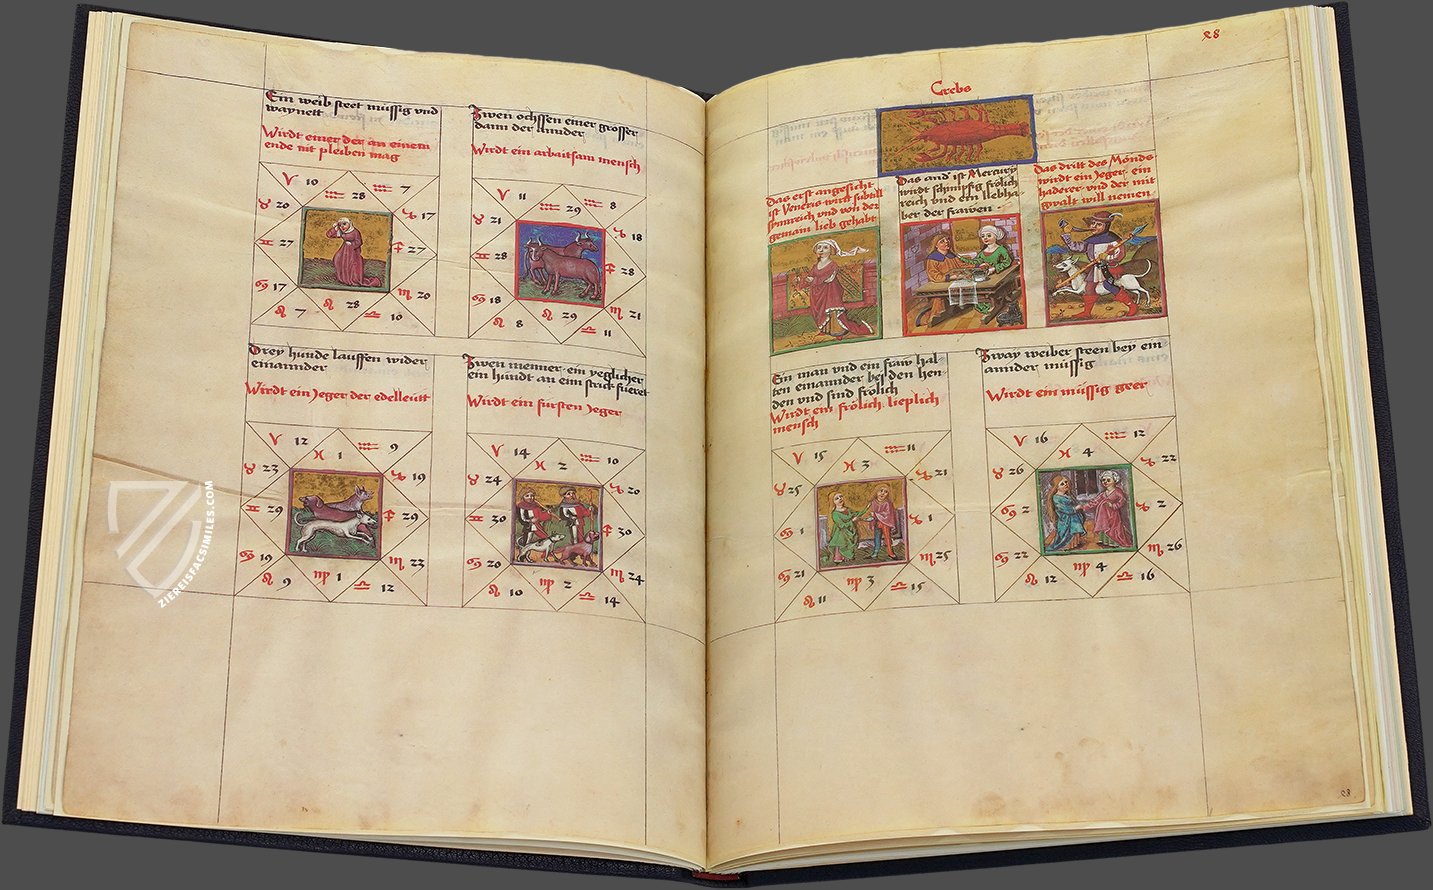 Ein weib steet müssig vnd
waynett
Wirdt einer der an einem
ende nit pleiben mag
♈ 10 ♒ 28 ♒ 7
♉ 20 ♑ 17
♊ 27 ♐ 27
♋ 17 ♏ 20
♌ 7 ♌ 28 ♎ 10
Zwen ochssen einer grosser
dann der annder
Wirdt ein arbaitsam mensch
♈ 11 ♒ 29 ♒ 8
♉ 21 ♑ 18
♊ 28 ♐ 28
♋ 18 ♏ 21
♌ 8 ♌ 29 ♎ 11
Drey hunde lauffen wider
einannder
Wirdt ein Jeger der edelleütt
♈ 12 ♓ 1 ♒ 9
♉ 23 ♑ 19
♊ 29 ♐ 29
♋ 19 ♏ 23
♌ 9 ♍ 1 ♎ 12
Zwen menner ein yeglicher
ein hundt an eim strick fueret
Wirdt ein fürsten Jeger
♈ 14 ♓ 2 ♒ 10
♉ 24 ♑ 20
♊ 30 ♐ 30
♋ 20 ♏ 24
♌ 10 ♍ 2 ♎ 14
ZIEREISFACSIMILES.COM
28
Crebs
Das erst angesicht
ist Veneris wirdt subtill
synnreich vnd von der
gemain lieb gehabt
Das and' ist Mercury
wirdt schimpfig frölich
reich vnd ein liebha-
ber der frawen
Das dritt des Monds
wirdt ein Jeger ein
haderer vnd der mit
gwalt will nemen
Ein man vnd ein fraw hal-
ten einannder bei den hen-
den vnd sind frölich
Wirdt ein frölich lieplich
mensch
♈ 15 ♓ 3 ♒ 11
♉ 25 ♑ 21
♋ 1 ♑ 1
♋ 21 ♏ 25
♌ 11 ♍ 3 ♎ 15
Zway weiber steen bey ein-
annder müssig
Wirdt ein müssig geer
♈ 16 ♓ 4 ♒ 12
♉ 26 ♑ 22
♋ 2 ♑ 2
♋ 22 ♏ 26
♌ 12 ♍ 4 ♎ 16
28